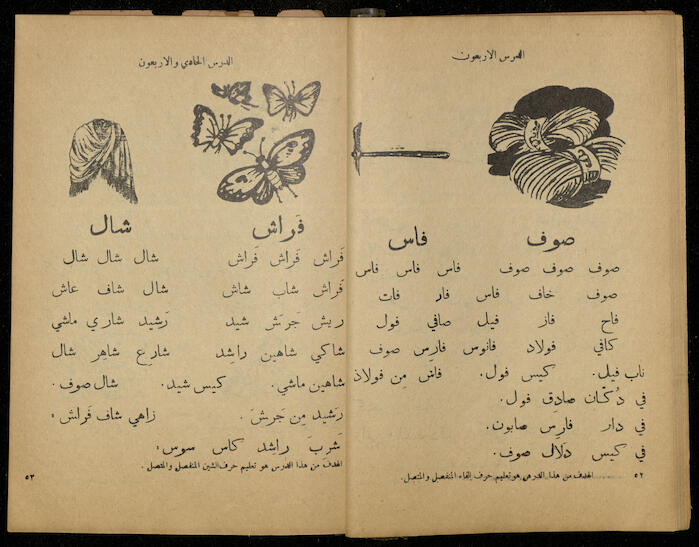 الدرس الاربعون
صوف فاس
صوف صوف صوف فاس فاس فاس
صوف خاف فاس فار فات
فاح فاز فيل صافي فول
كافي فولاد فانوس فارس صوف
ناب فيل. كيس فول. فاس مِن فولاذ
في دُكّان صادِق فول.
في دار فارِس صابون.
في كيس دَلال صوف.
الهدف من هذا الدرس هو تعليم حرف الفاء المنفصل والمتصل.
٥٢
الدرس الحادي والاربعون
فَراش شال
فَراش فَراش فَراش شال شال شال
فَراش شاب شاش شال شاف عاش
ريش جَرَش شيد رَشيد شاري ماشي
شاكي شاهين راشِد شارِع شاهِر شال
شاهين ماشي. كيس شيد. شال صوف.
رَشيد مِن جَرَش. زاهي شاف فَراش.
شَرِبَ راشِد كاس سوس.
الهدف من هذا الدرس هو تعليم حرف الشين المنفصل والمتصل.
٥٣